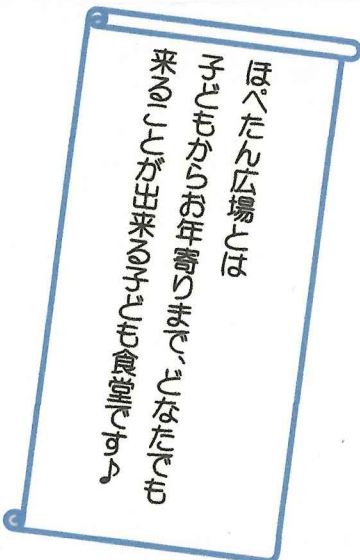 ほぺたん広場とは
子どもからお年寄りまで、どなたでも
来ることが出来る子ども食堂です♪